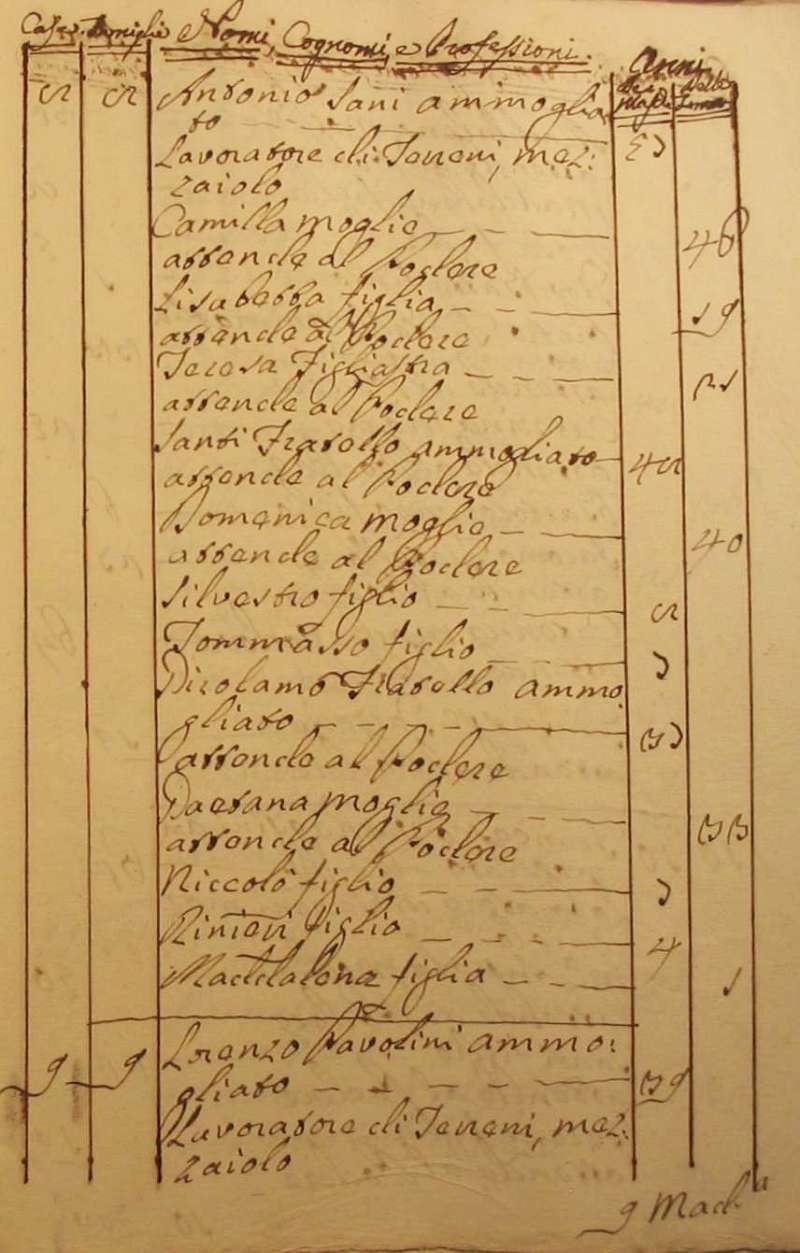 Case. Famiglie Nomi, Cognomi, e Professioni. Anni
dei Maschi delle Femine
Antonio Sani ammoglia
to
Lavoratore di Terreni, mez:
zaiolo
Camilla moglie 46
attende al Podere
Lisabetta figlia 19
attende al Podere
Teresa Figliastra 21
attende al Podere
Santi Fratello ammogliato 42
attende al Podere
Domenica moglie 40
attende al Podere
Silvestro figlio
Tommasso figlio
Girolamo Fratello ammo
gliato
attende al Podere
Gaetana moglie 33
attende al Podere
Niccolò figlio
Rinieri figlio 4
Maddalena figlia 1
9 9 Lorenzo Pavolini ammo:
gliato 39
Lavoratore di Terreni, mez:
zaiolo
9 Madª